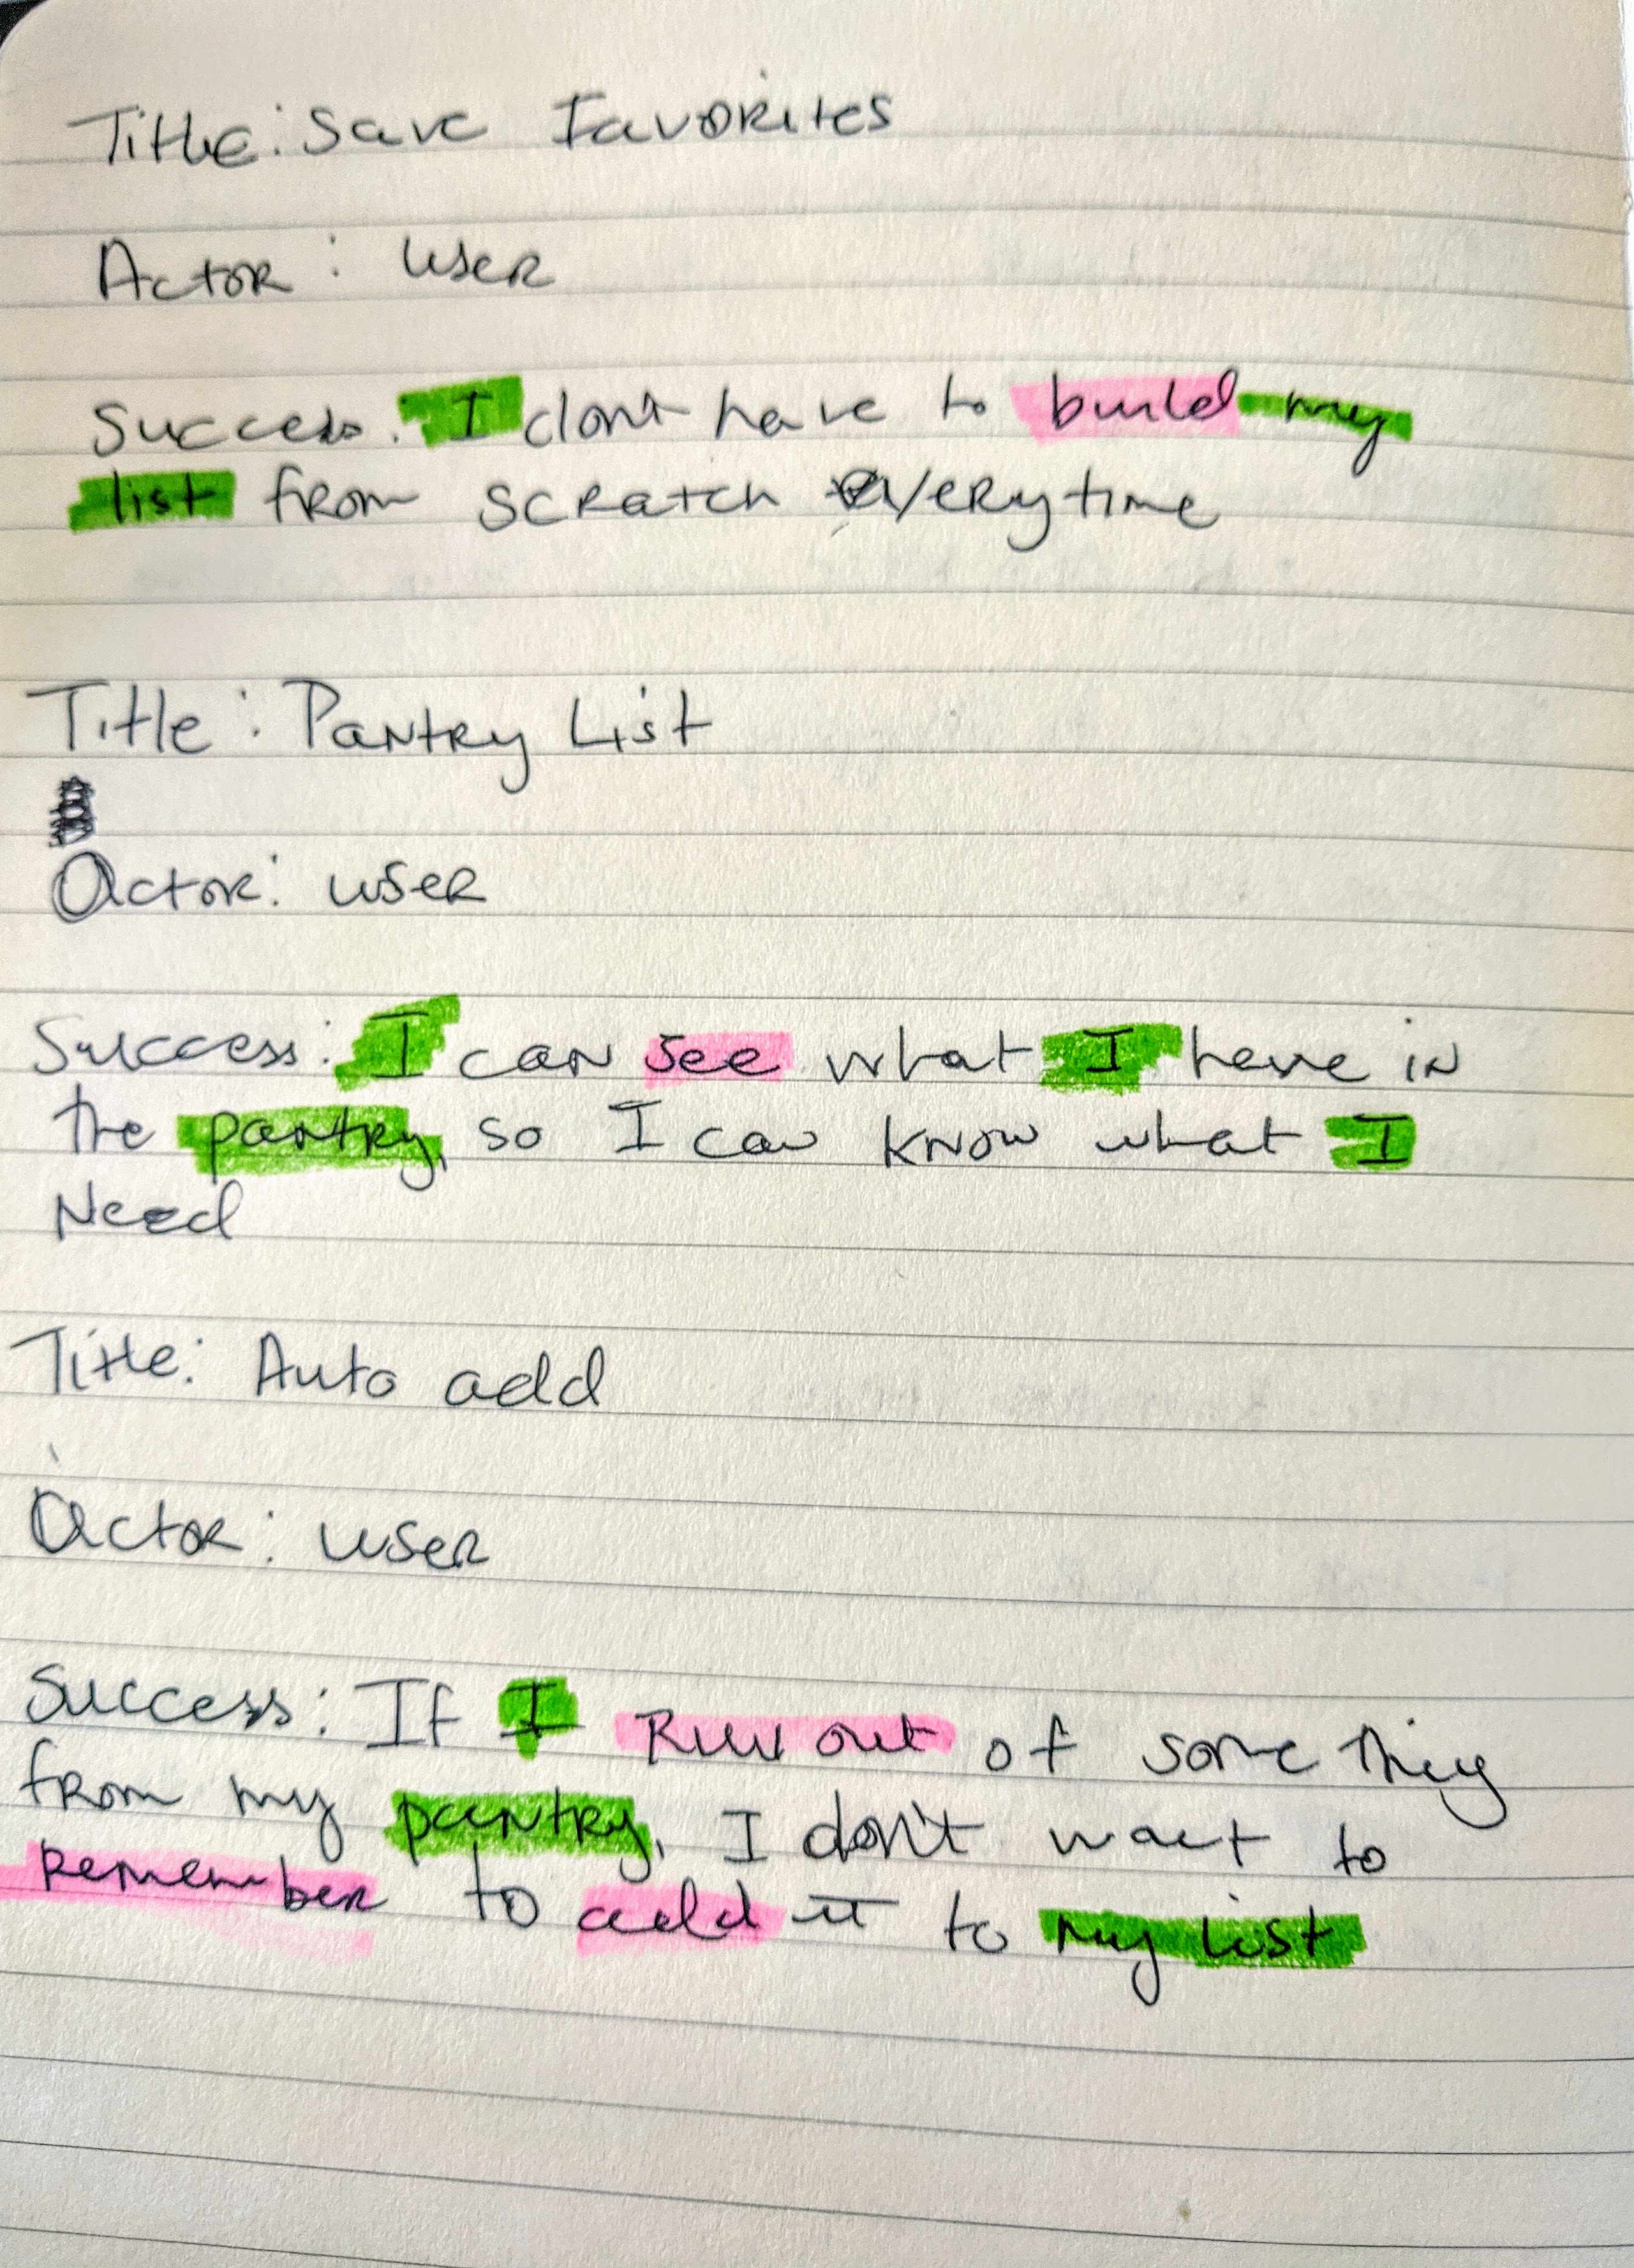 Title: Save Favorites
Actor: user
Success: I dont have to build my
list from scratch everytime
Title: Pantry List
Actor: user
Success: I can see what I have in
the pantry, so I can know what I
Need
Title: Auto add
Actor: user
Success: If I Run out of some thing
from my pantry, I don't want to
remember to add it to my list